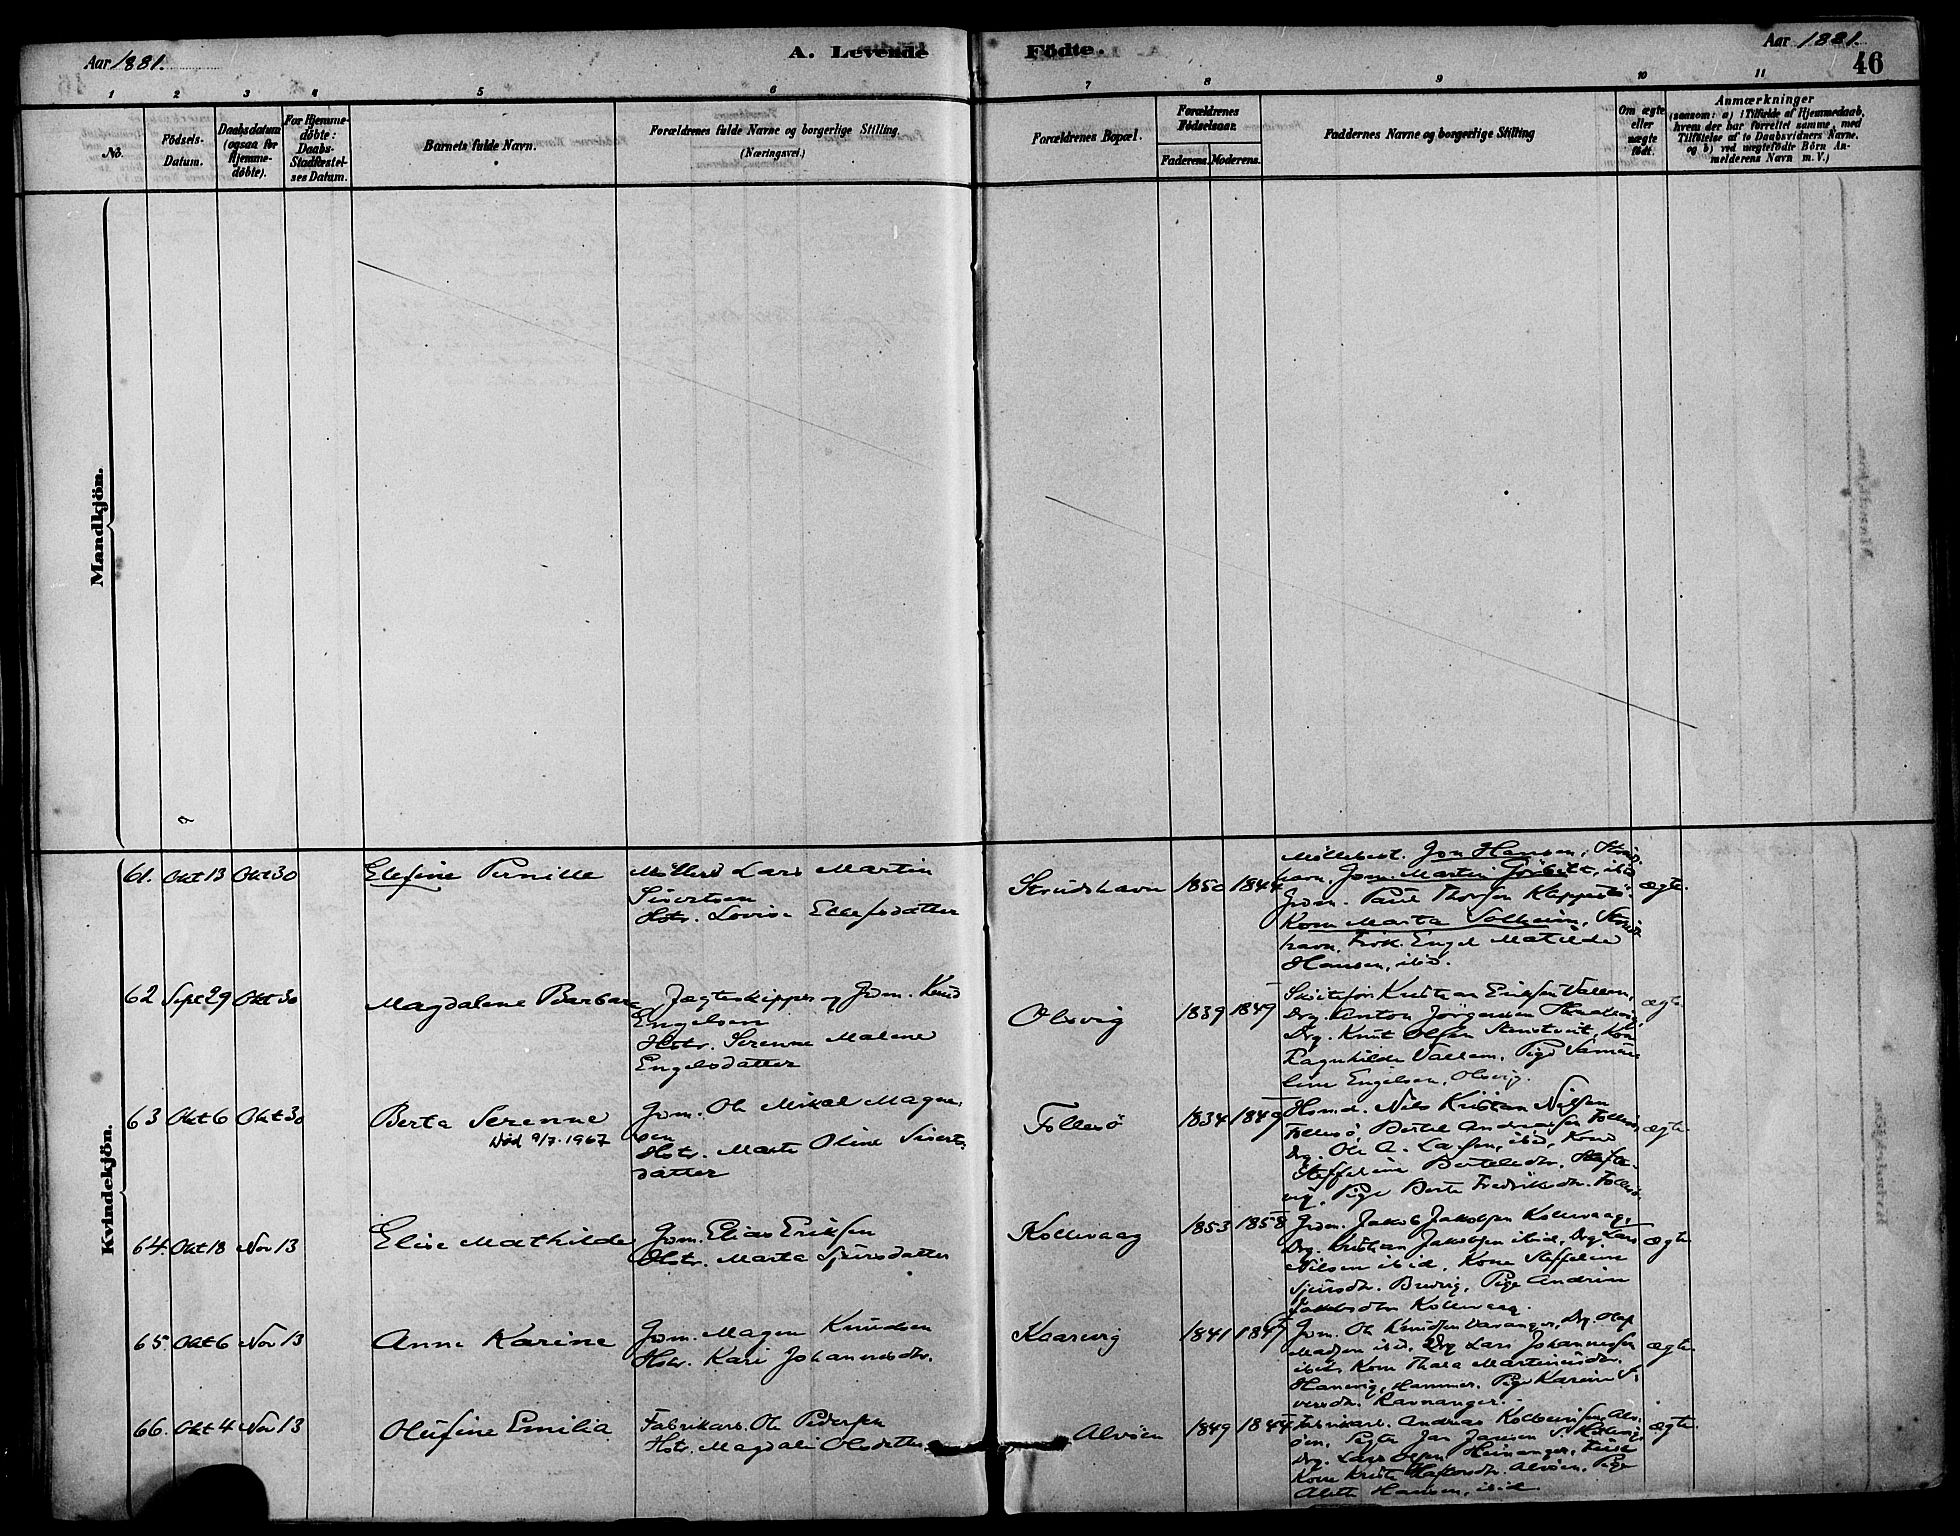 Aar 1881.
A. Levende Födte.
Aar 1881.
46
1 2 3 4 5 6 7 8 9 10 11
No.
Födsels-
Datum.
Daabsdatum
(ogsaa for
Hjemme-
döbte).
For Hjemme-
döbte:
Daabs-
Stadfæstel-
ses Datum.
Barnets fulde Navn.
Forældrenes fulde Navne og borgerlige Stilling.
(Næringsvei.)
Forældrenes Bopæl.
Forældrenes
Födselsaar.
Faderens. Moderens.
Faddernes Navne og borgerlige Stilling
Om ægte
eller
uægte
födt.
Anmærkninger
(saasom: a) i Tilfælde af Hjemmedaab,
hvem der har forrettet samme, med
Tilföielse af to Daabsvidners Navne,
og b) ved uægtefödte Börn An-
melderens Navn m. V.)
Mandkjön.
Kvindekjön.
61. Okt 13 Okt 30
Elefine Pernille
Lars Martin
Sivertsen
Hstr. Lovise Ellefsdatter
Strudshavn
1850 1844
Jon Hansen,
Gm. Paul Thorsen Kleppestö
Kone Marta Solheim,
havn, Frök. Engel Matilde
Hansen, ibid.
ægte
62 Sept 29 Okt 30
Magdalene Barbara
Jægteskipper og Gm. Knud
Engelsen
Hstr. Serenne Malene
Engelsdatter
Olsvig
1839 1849
Kristian Eriksen Vallem,
Drg. Anton Jörgensen
Drg. Knut Olsen
Ragnhilde Vallem, Pige
Engelsen, Olsvig.
ægte
63 Okt 6 Okt 30
Berta Serenne
Död 9/7.1967
Gm. Ole Mikal Magne-
sen
Hstr. Marte Oline Siverts-
datter
Follesö
1834 1849
Nils Kristian Nilsen
Follesö,
Drg. Ole A. Larsen, ibid, Kone
Steffeline Bertelsdtr.
vig, Pige Berte Fredriksdtr. Follesö
ægte
64. Okt 18 Nov 13
Elise Mathilde
Gm. Elias Eriksen
Hstr. Marta Sjursdatter
Kollevaag
1853 1858
Gm. Jakob Jakobsen Kollevaag,
Drg. Kristian Jakobsen ibid, Drg Lars
Nilsen ibid, Kone Steffeline
Sjursdtr. Bredvig, Pige Andrine
Jakobsdtr Kollevaag.
ægte
65. Okt 6 Nov 13
Anne Karine
Gm. Magne Knudsen
Hstr. Kari Johannesdtr.
Kaarvig
1841
Gm. Ole Knudsen Ravnanger, Drg Olaf
Madsen ibid, Drg Lars Johannesen
ibid, Kone Thala Martinusdtr.
Hanevig, Hammer. Pige Karine
Ravnanger.
ægte
66. Okt 4 Nov 13
Olufine Emilia
Fabrikarb. Ole Pedersen
Hstr. Magdali Olsdatter
Alvöen
1849 1844
Fabrikarb. Andreas Kolbeinsen Alv-
öen,
Drg. Lars Olsen
Kone Alvöen, Pige
Hansen, ibid.
ægte